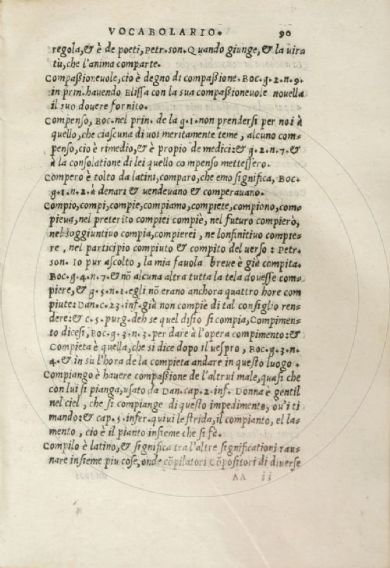 VOCABOLARIO. 90
regola, & è de poeti, Petr. son. Quando giunge, & la uira
tù, che l'anima comparte.
Compaßioneuole, cio è degno di compaßione. Boc. g. 2. n. 9.
in prin. hauendo Elissa con la sua compaßioneuole nouella
il suo douere fornito.
Compenso, Boc. nel prin. de la g. 1. non prendersi per noi à
quello, che ciascuna di uoi meritamente teme, alcuno com-
penso, cio è rimedio, & è propio de medici: & g. 2. n. 7. &
à la consolatione di lei quello compenso mettessero.
Compero è tolto da latini, comparo, che emo significa, Boc.
g. 1. n. 2. à denari & uendeuano & comperauano.
Compio, compi, compie, compiamo, compiete, compiono, com
pieua, nel preterito compiei compiè, nel futuro compierò,
nel soggiuntiuo compia, compierei, ne lonfinitiuo compie-
re, nel participio compiuto & compito del uerso: Petr.
son. 10 pur ascolto, la mia fauola breue è già compita.
Boc. g. 4. n. 7. & nõ alcuna altra tutta la tela douesse com
piere, & g. 5. n. 1. egli nõ erano anchora quattro hore com
piute: Dan. c. 23. inf. già non compiè di tal consiglio ren
dere: & c. 5. purg. deh se quel disio si compia, Compimen-
to dicesi, Boc. g. 3. n. 3. per dare à l'opera compimento: &
Compieta è quella, che si dice dopo il uespro, Boc. g. 3. n.
4. & in su l'hora de la compieta andare in questo luogo.
Compiango è hauere compaßione de l'altrui male, quasi che
con lui si pianga, usato da Dan. cap. 2. inf. Donna è gentil
nel ciel, che si compiange di questo impedimento, ou'i ti
mando: & cap. 5. infer. quiui le strida, il compianto, el la-
mento, cio è il pianto insieme che si fè.
Compilo è latino, & significa tra l'altre significationi rau-
nare insieme piu cose, onde cõpilatori cõpositori di diuerse
AA ii